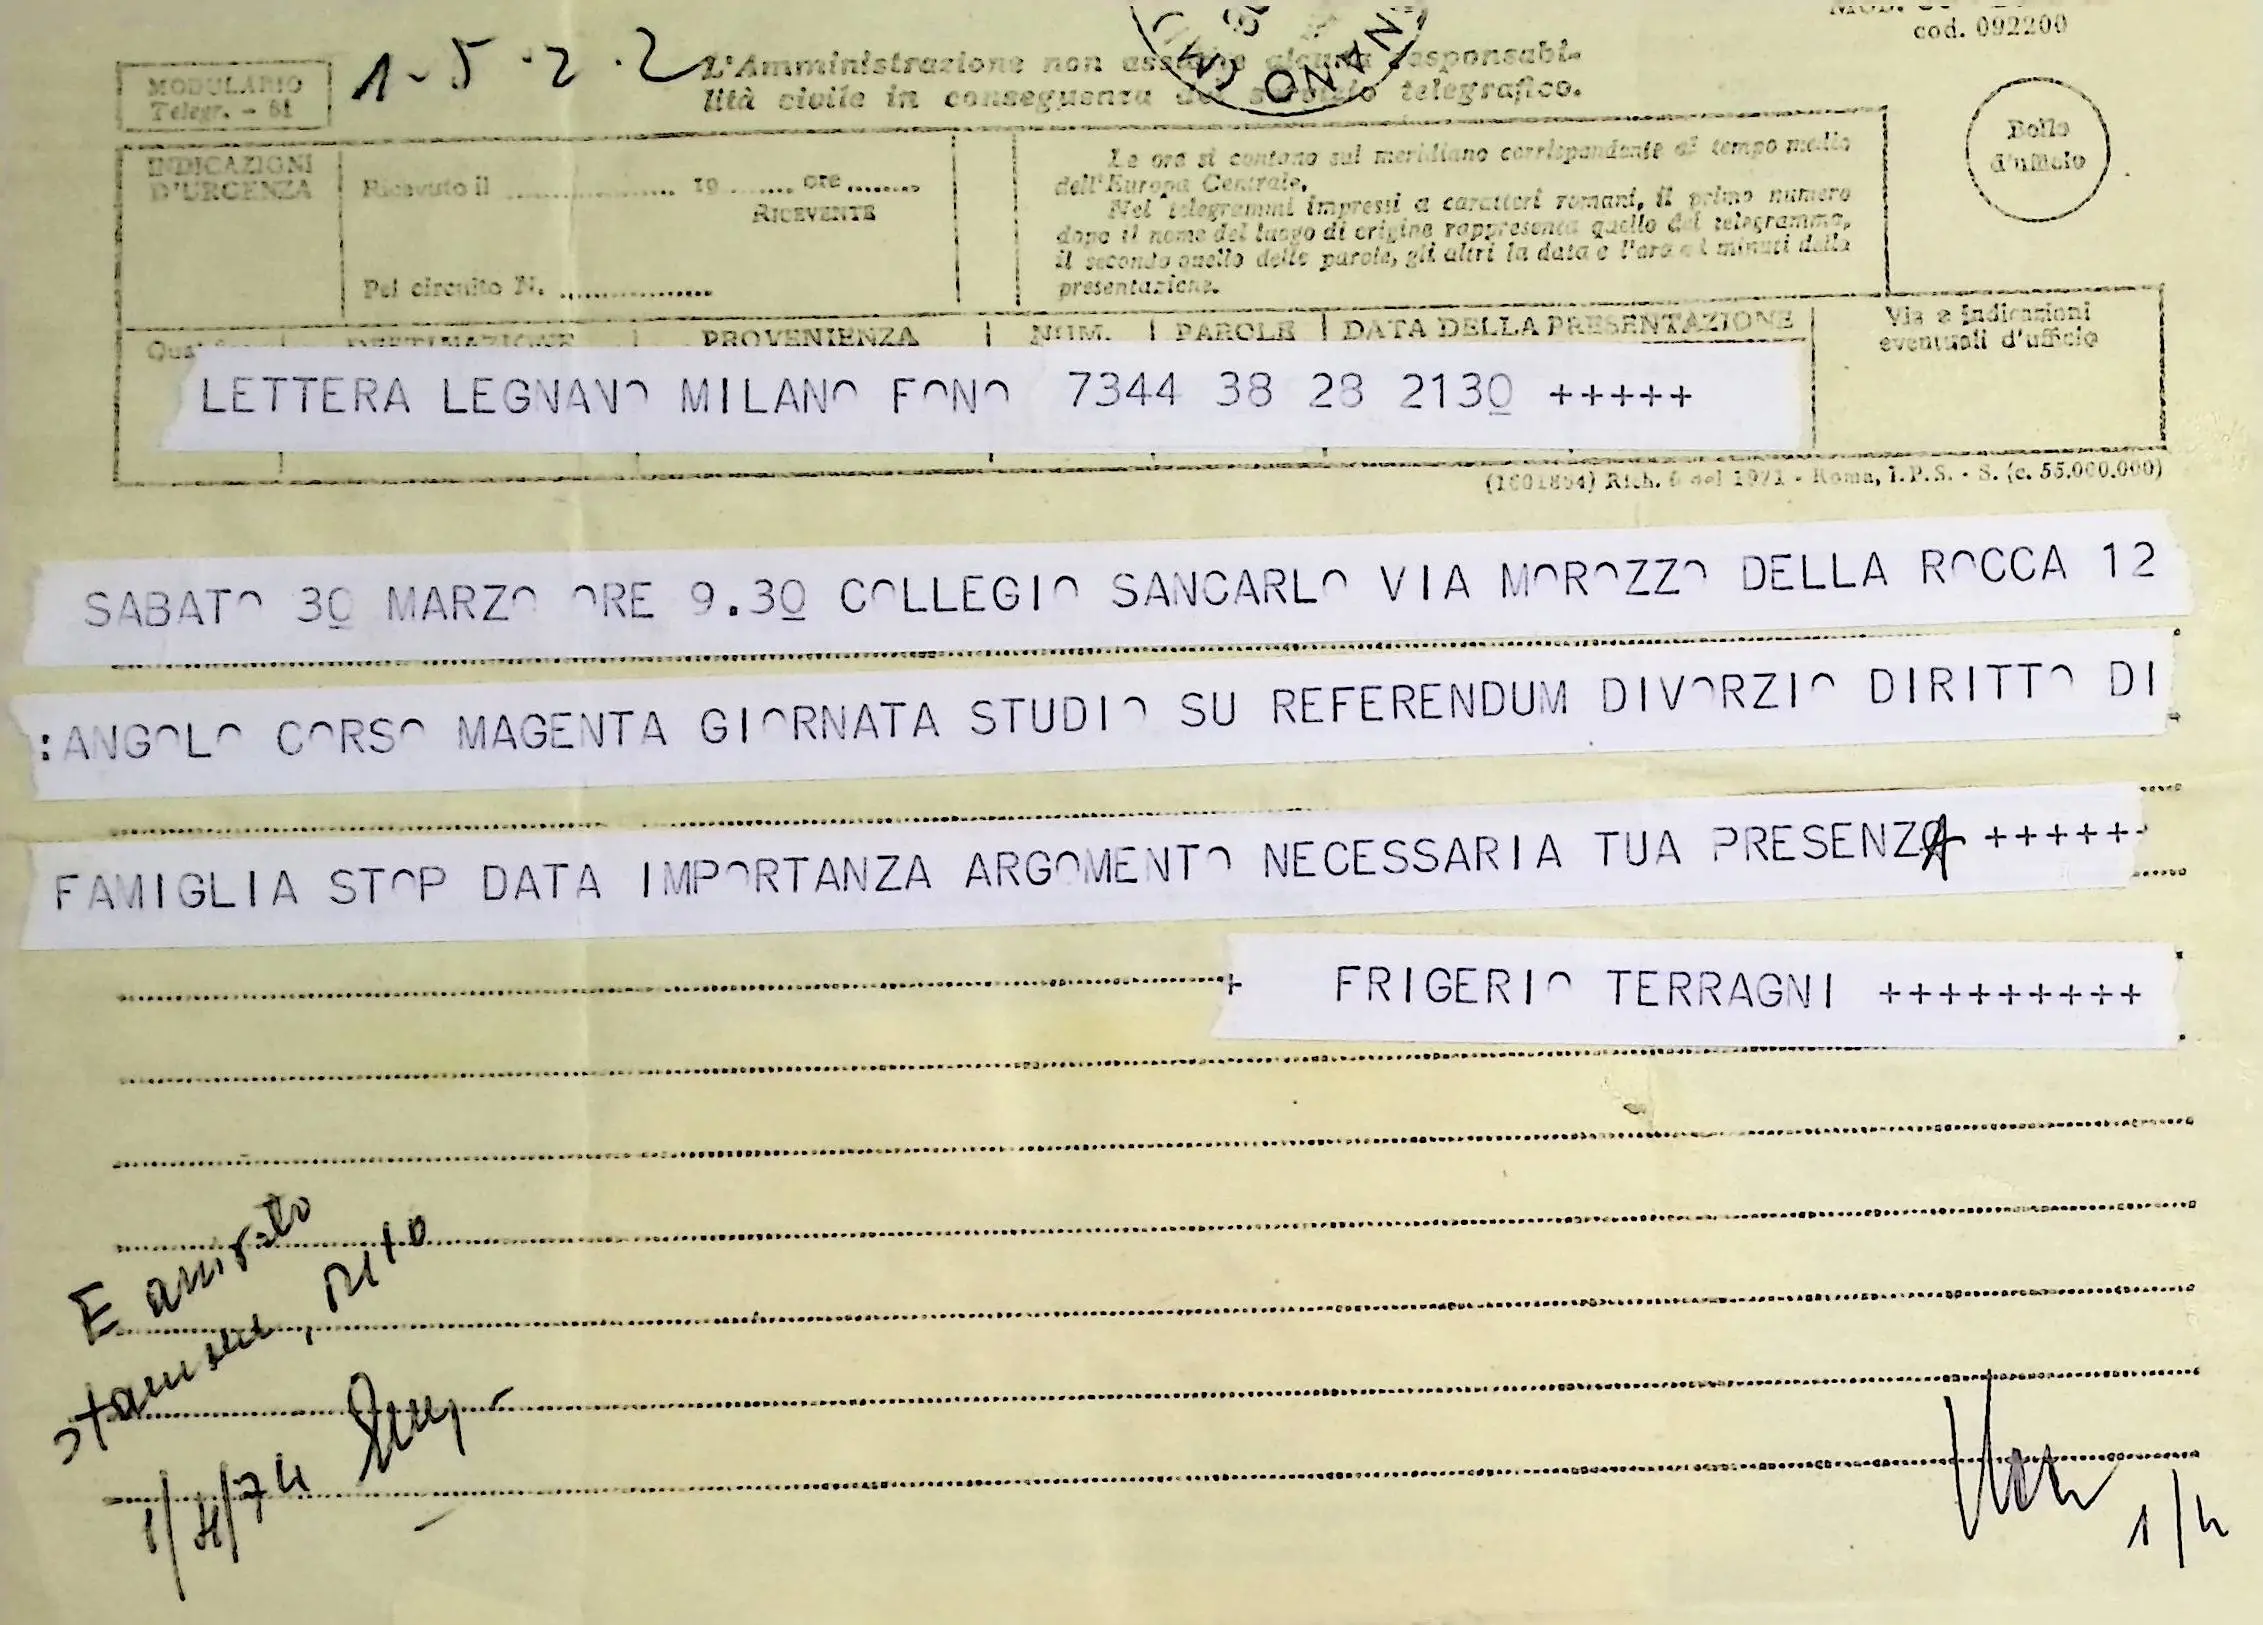 cod. 092200
1-5.2.2
MODULARIO
Telegr. - 61
L'Amministrazione non assume alcuna responsabi-
lità civile in conseguenza del servizio telegrafico.
ONAN
Bollo
d'ufficio
INDICAZIONI
D'URGENZA
Ricevuto il ................ 19 ....... ore .......
RICEVENTE
Pel circuito N. ...............
Le ore si contano sul meridiano corrispondente al tempo medio
dell'Europa Centrale.
Nei telegrammi impressi a caratteri romani, il primo numero
dopo il nome del luogo di origine rappresenta quello del telegramma,
il secondo quello delle parole, gli altri la data e l'ora e i minuti della
presentazione.
DESTINAZIONE PROVENIENZA NUM. PAROLE DATA DELLA PRESENTAZIONE
Via e indicazioni
eventuali d'ufficio
LETTERA LEGNANO MILANO FONO 7344 38 28 2130 +++++
Rich. 6 del 1971 - Roma, I.P.S. - S. (c. 55.000.000)
SABATO 30 MARZO ORE 9.30 COLLEGIO SANCARLO VIA MOROZZO DELLA ROCCA 12
:ANGOLO CORSO MAGENTA GIORNATA STUDIO SU REFERENDUM DIVORZIO DIRITTO DI
FAMIGLIA STOP DATA IMPORTANZA ARGOMENTO NECESSARIA TUA PRESENZA ++++++
+ FRIGERIO TERRAGNI +++++++++
E arrivato
1/4/74
1/4